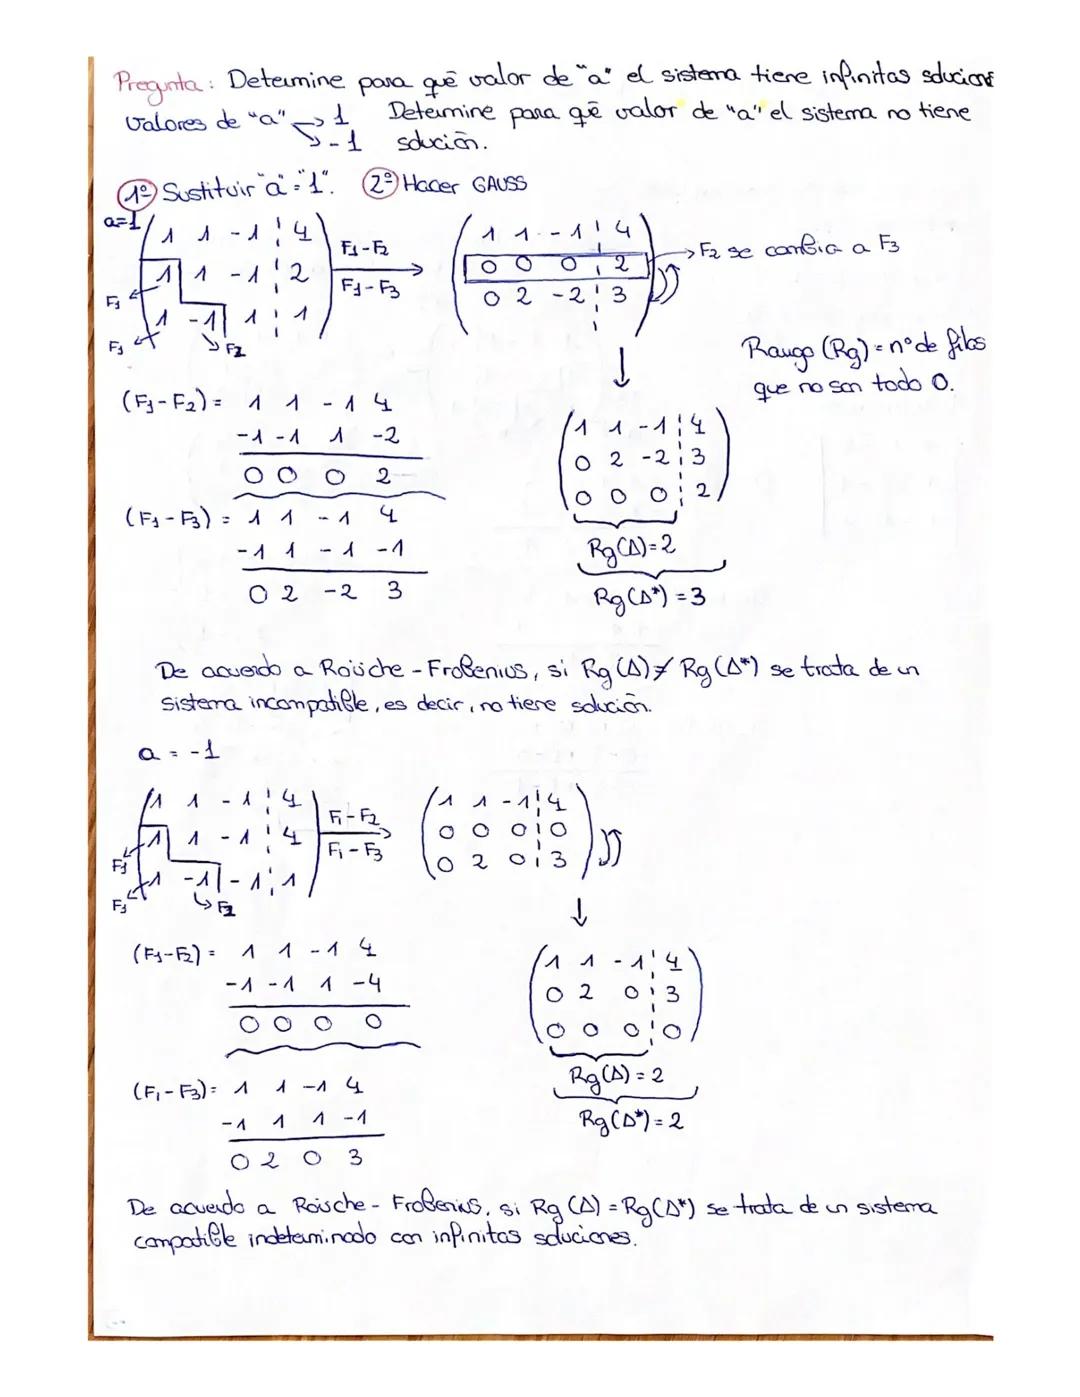 Pregunta: Determine para qué valor de "a" el sistema tiene infinitas soluciones
valores de "a" → 1 Determine para qué valor de "a" el sistema no tiene
↘ -1 solución.
1º Sustituir "a" = "1". 2º Hacer GAUSS
a=1
1 1 -1 4 F1-F2 1 1 -1 4
1 1 -1 2 F1-F3 0 0 0 2 → F2 se cambia a F3
F1 0 2 -2 3
1 -1 1 1
F1 F2
Rango (Rg) = nº de filas
que no son todo 0.
(F1-F2) = 1 1 -1 4
-1 -1 1 -2
0 0 0 2
1 1 -1 4
0 2 -2 3
0 0 0 2
(F1-F3) = 1 1 -1 4
-1 1 -1 -1
0 2 -2 3
Rg(A)=2
Rg(A*)=3
De acuerdo a Roûche-Frobenius, si Rg(A) ≠ Rg(A*) se trata de un
sistema incompatible, es decir, no tiene solución.
a = -1
1 1 -1 4 F1-F2 1 1 -1 4
1 1 -1 4 F1-F3 0 0 0 0
F1 0 2 0 3
1 -1 -1 1
F1 F2
(F1-F2) = 1 1 -1 4
-1 -1 1 -4
0 0 0 0
1 1 -1 4
0 2 0 3
0 0 0 0
(F1-F3) = 1 1 -1 4
-1 1 1 -1
0 2 0 3
Rg(A) = 2
Rg(A*) = 2
De acuerdo a Roûsche-Frobenius, si Rg(A) = Rg(A*) se trata de un sistema
compatible indeterminado con infinitas soluciones.